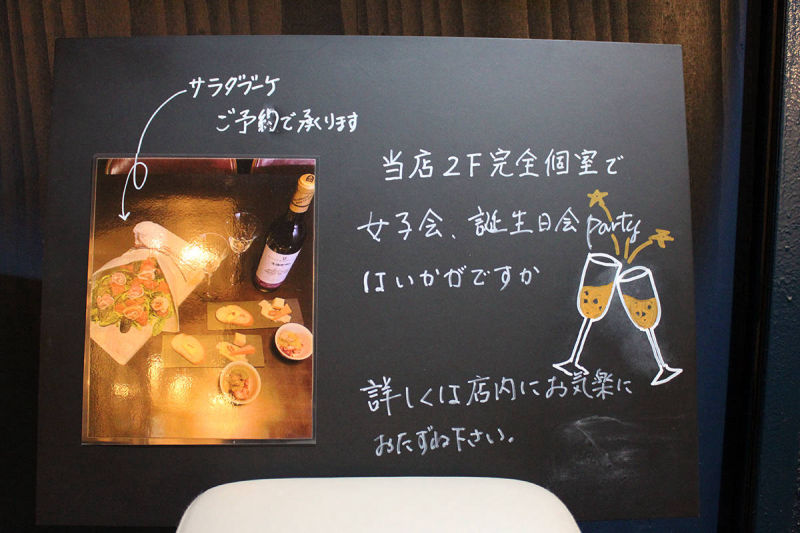 サラダブーケ
ご予約で承ります
当店2F完全個室で
女子会、誕生日会party
はいかがですか
詳しくは店内にお気楽に
おたずね下さい。